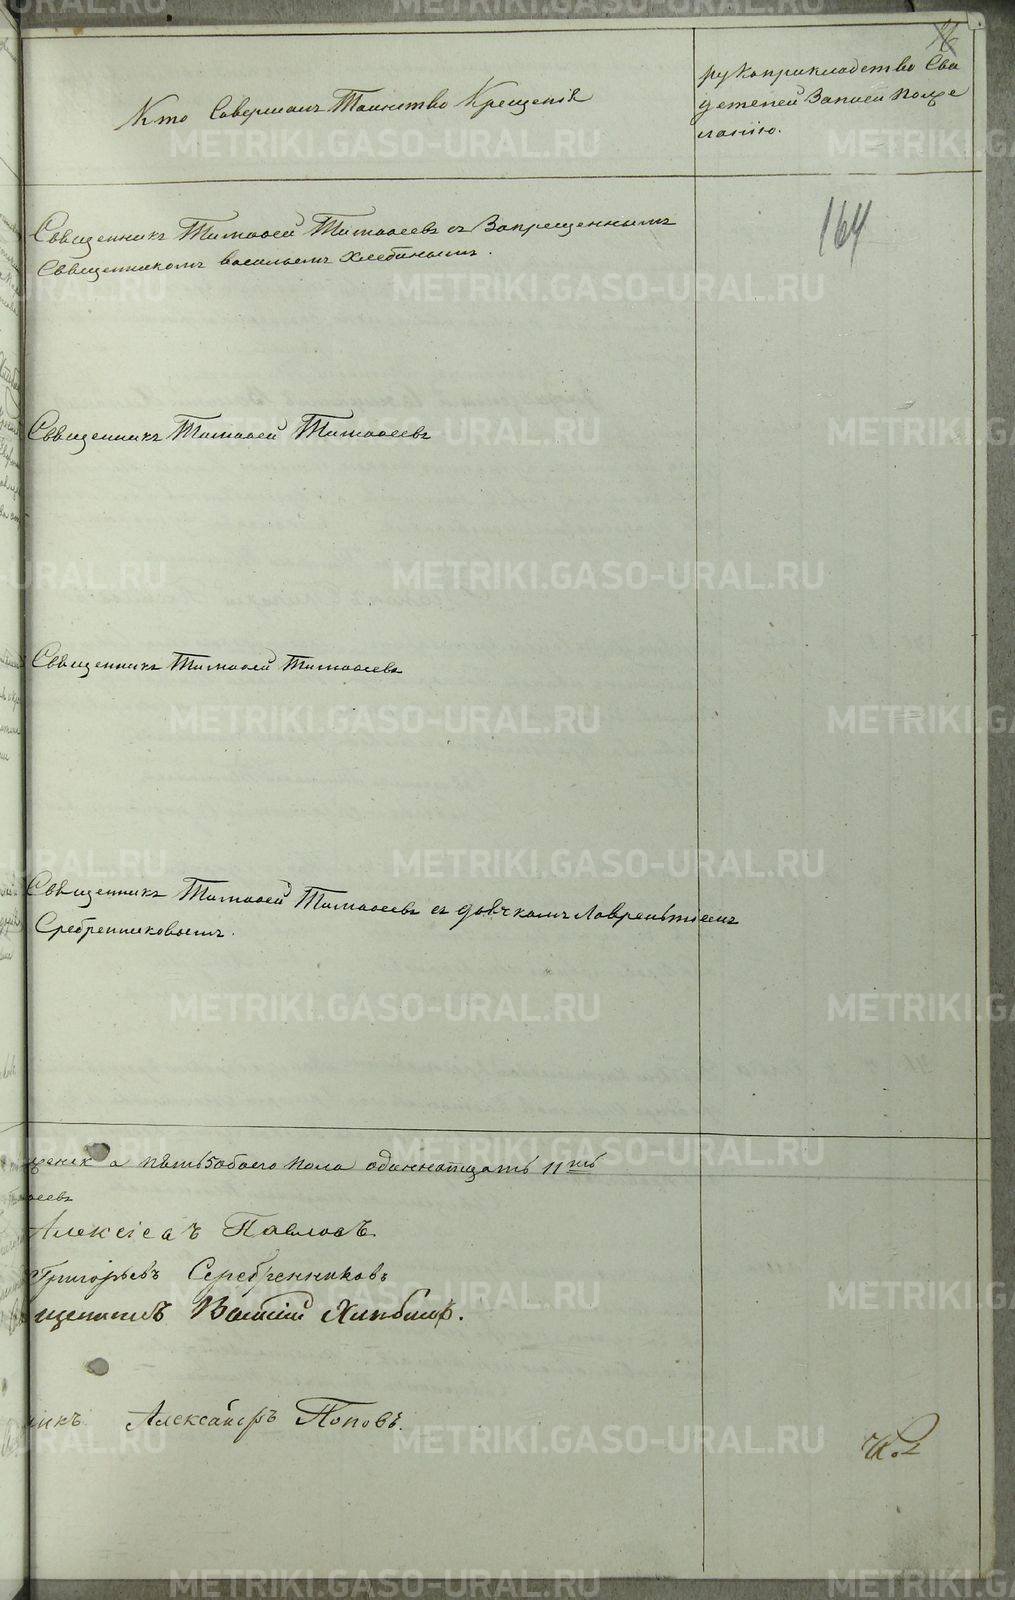 Кто Совершалъ Таинство Крещенія
рукоприкладство Сви
детелей Записи по же
ланію.
164
Священникъ Тимофей Тимофеевъ съ Запрещеннымъ
Священникомъ Василіемъ Хлебинымъ.
Священникъ Тимофей Тимофеевъ
Священникъ Тимофей Тимофеевъ
Священникъ Тимофей Тимофеевъ съ дьячкомъ Лаврентіемъ
Сребренниковымъ.
а пять 5 обоего пола одиннатцать 11ть
феевъ
Алексіевъ Павловъ
Григорьевъ Серебренниковъ
Василій Хлебинъ.
никъ Александръ Поповъ.
METRIKI.GASO-URAL.RU